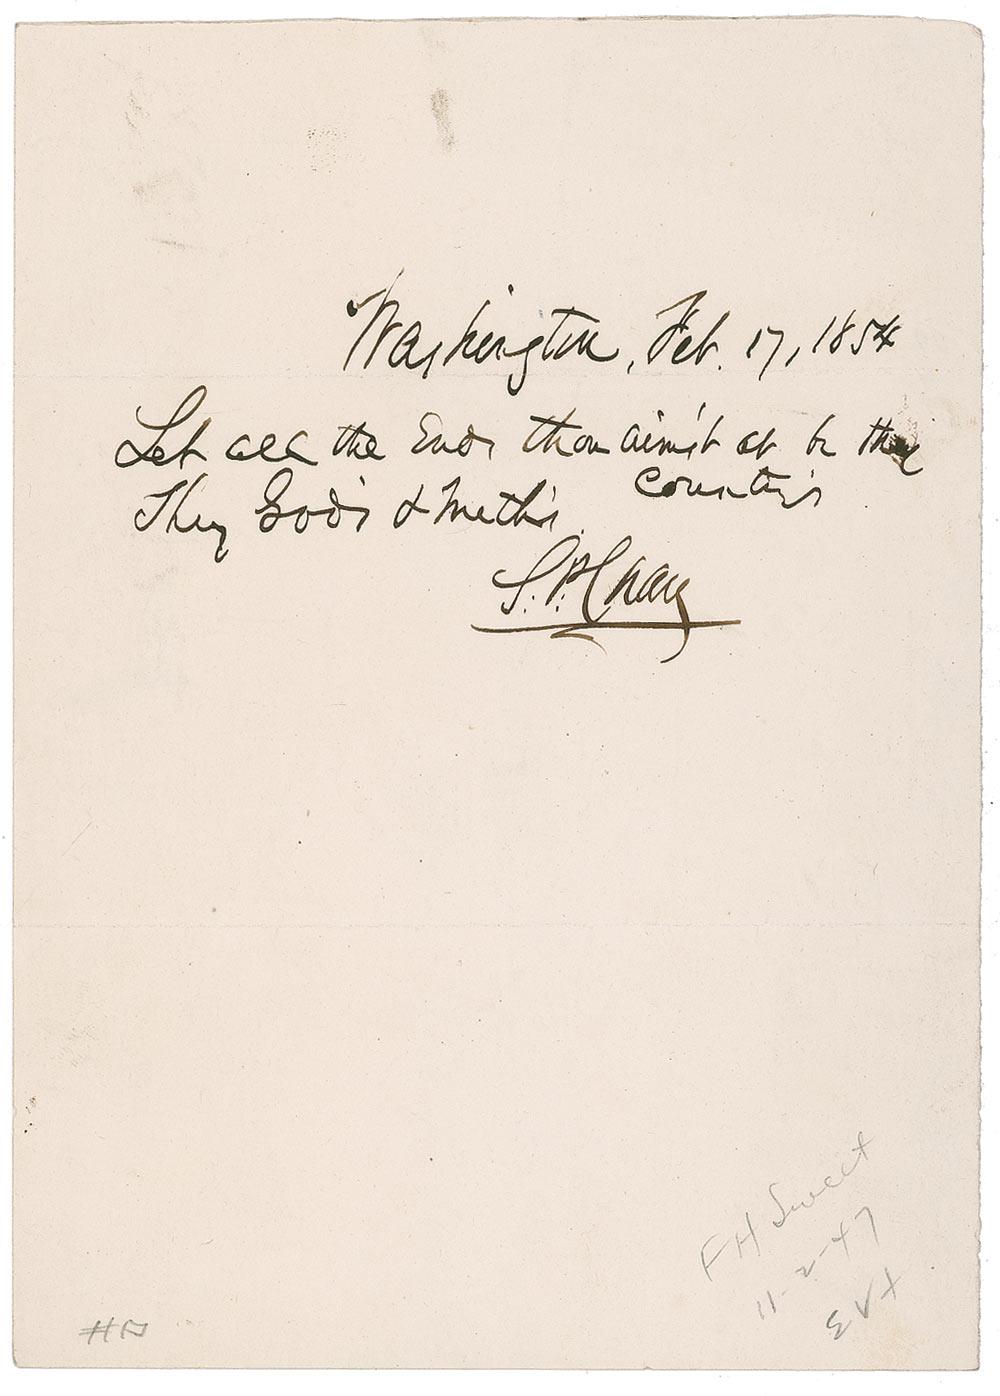 Washington, Feb. 17, 1854
Let all the Ends thou aim'st at be thy
Country's
Thy God's & Truth's.
S. P. Chase
FH Sweet
11-2-47